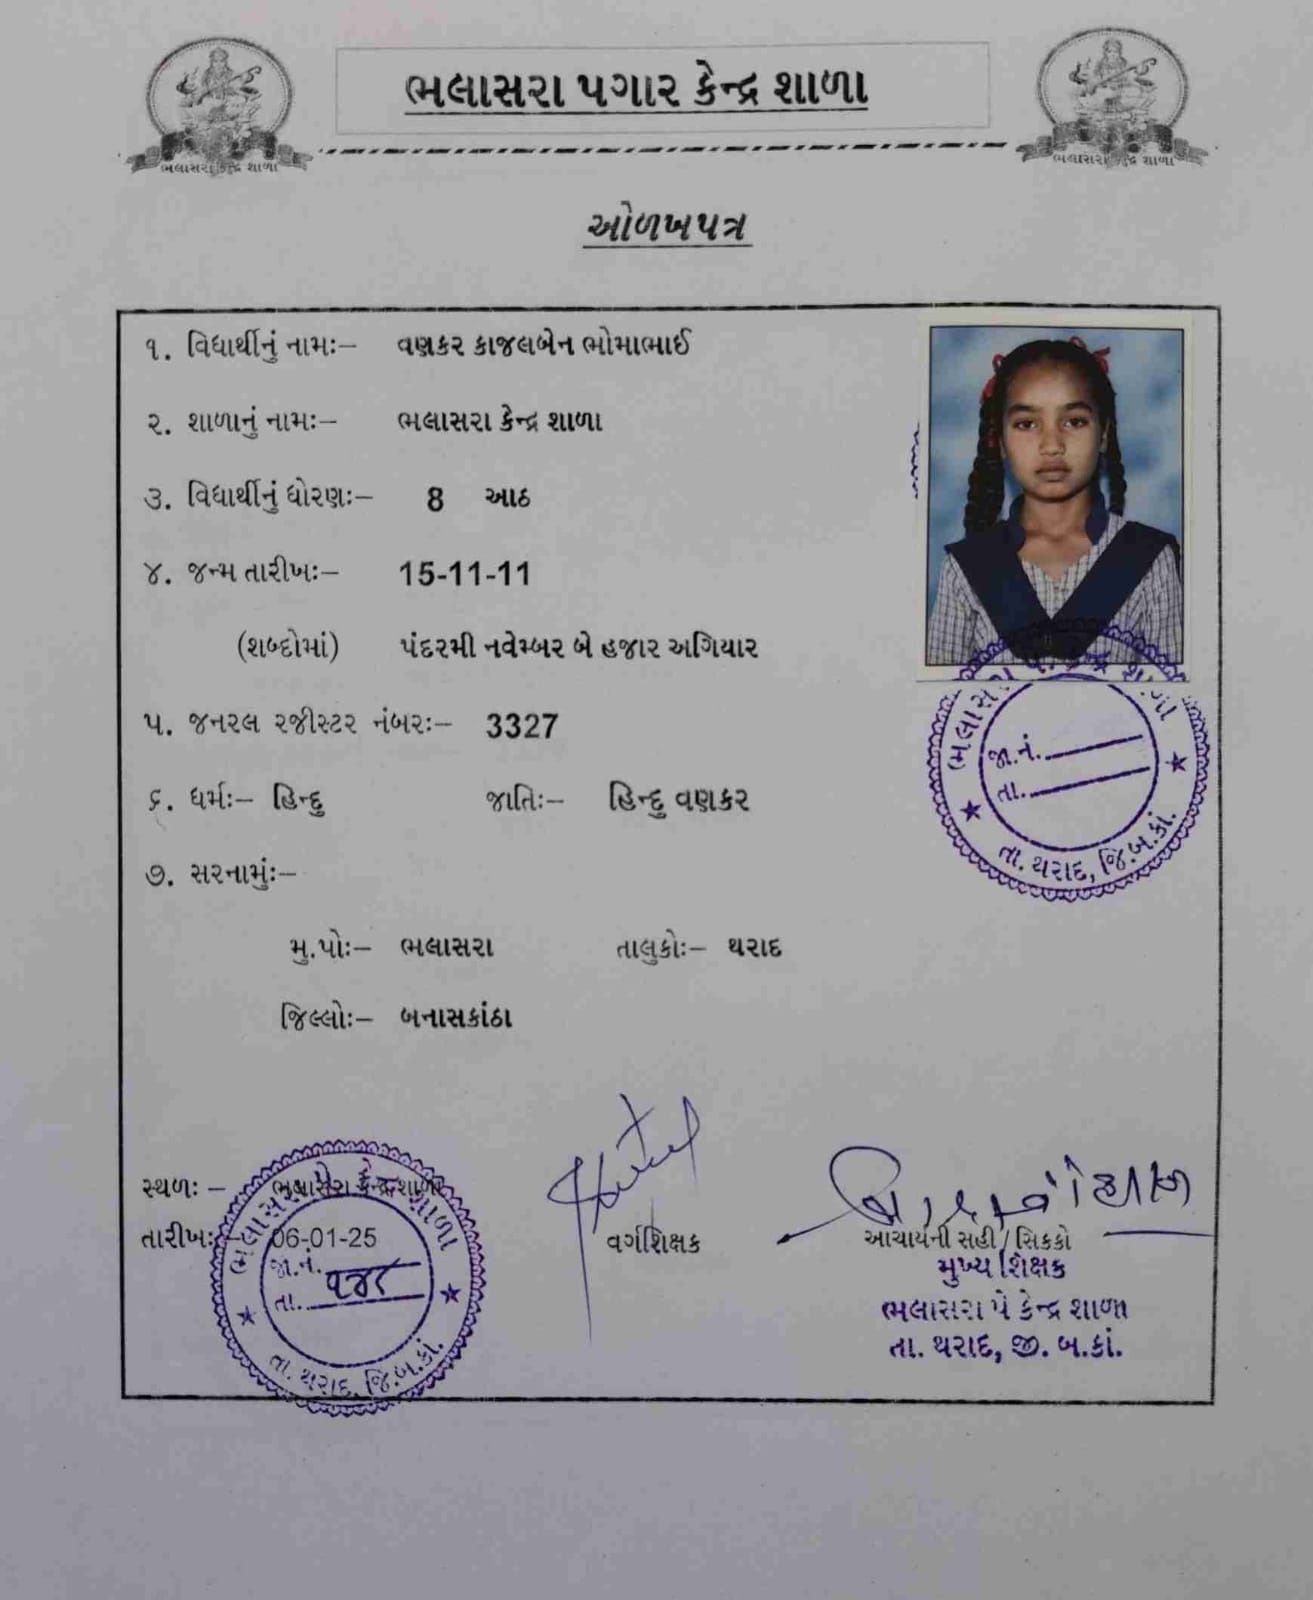 ભલાસરા પગાર કેન્દ્ર શાળા
ભલાસરા કેન્દ્ર શાળા
ભલાસરા કેન્દ્ર શાળા
ઓળખપત્ર
૧. વિદ્યાર્થીનું નામઃ– વણકર કાજલબેન ભોમાભાઈ
૨. શાળાનું નામઃ– ભલાસરા કેન્દ્ર શાળા
૩. વિદ્યાર્થીનું ધોરણઃ– 8 આઠ
૪. જન્મ તારીખઃ– 15-11-11
(શબ્દોમાં) પંદરમી નવેમ્બર બે હજાર અગિયાર
૫. જનરલ રજીસ્ટર નંબરઃ– 3327
૬. ધર્મઃ– હિન્દુ જાતિઃ– હિન્દુ વણકર
૭. સરનામુંઃ–
મુ.પોઃ– ભલાસરા તાલુકોઃ– થરાદ
જિલ્લોઃ– બનાસકાંઠા
ભલાસરા કેન્દ્ર શાળા
જા.નં.
તા.
તા. થરાદ, જિ.બ.કાં.
સ્થળઃ – ભલાસરા કેન્દ્ર શાળા
તારીખઃ 06-01-25
ભલાસરા પે કેન્દ્ર શાળા
જા.નં.
તા.
તા. થરાદ, જિ.બ.કાં.
વર્ગશિક્ષક
આચાર્યની સહી / સિકકો
મુખ્ય શિક્ષક
ભલાસરા પે કેન્દ્ર શાળા
તા. થરાદ, જી. બ.કાં.